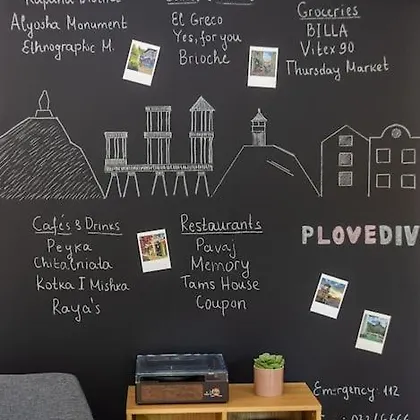 Kapana District
Alyosha Monument
Ethnographic M.
El Greco
Yes, for you
Brioche
Groceries
BILLA
Vitex 90
Thursday Market
Cafés & Drinks
Peyka
Chitalniata
Kotka I Mishka
Raya's
Restaurants
Pavaj
Memory
Tams House
Coupon
PLOVEDIV
Emergency: 112